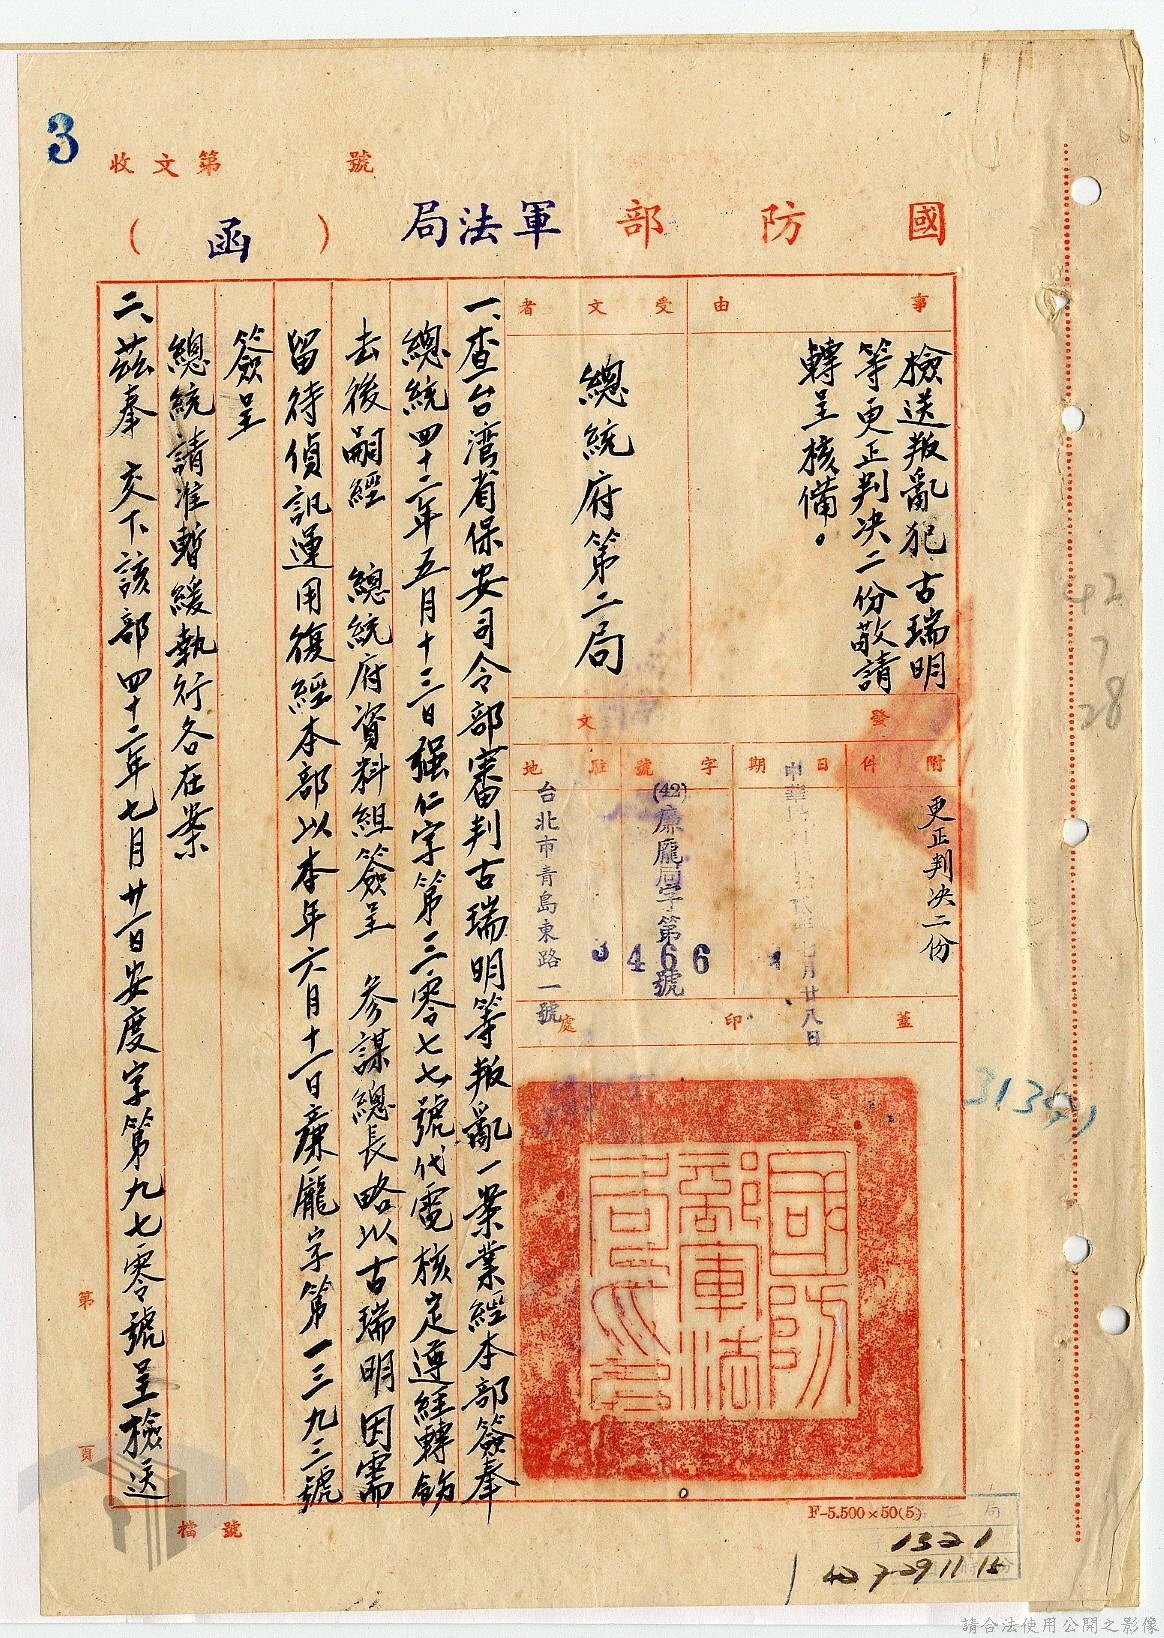 3
收文第　　號
國防部軍法局（函）
事由
檢送叛亂犯古瑞明
等更正判決二份敬請
轉呈核備。
受文者
總統府第二局
發文
附件
更正判決二份
日期
中華民國　拾貳年七月廿八日
字號
(42)廉龐局字第3466號
駐地
台北市青島東路一號
蓋印處
國防部軍法局
一、查台湾省保安司令部審判古瑞明等叛亂一案業經本部簽奉
總統四十二年五月十三日强仁字第三零七七號代電核定遵經轉飭
去後嗣經　總統府資料組簽呈　參謀總長略以古瑞明因需
留待偵訊運用復經本部以本年六月十一日廉龐字第一三九三號
簽呈
總統請准暫緩執行各在案
二、茲奉　交下該部四十二年七月廿一日安度字第九七零號呈檢送
第　頁
檔號
F-5.500×50(5)
1321
42 7 29 11 15
42
7
28
請合法使用公開之影像